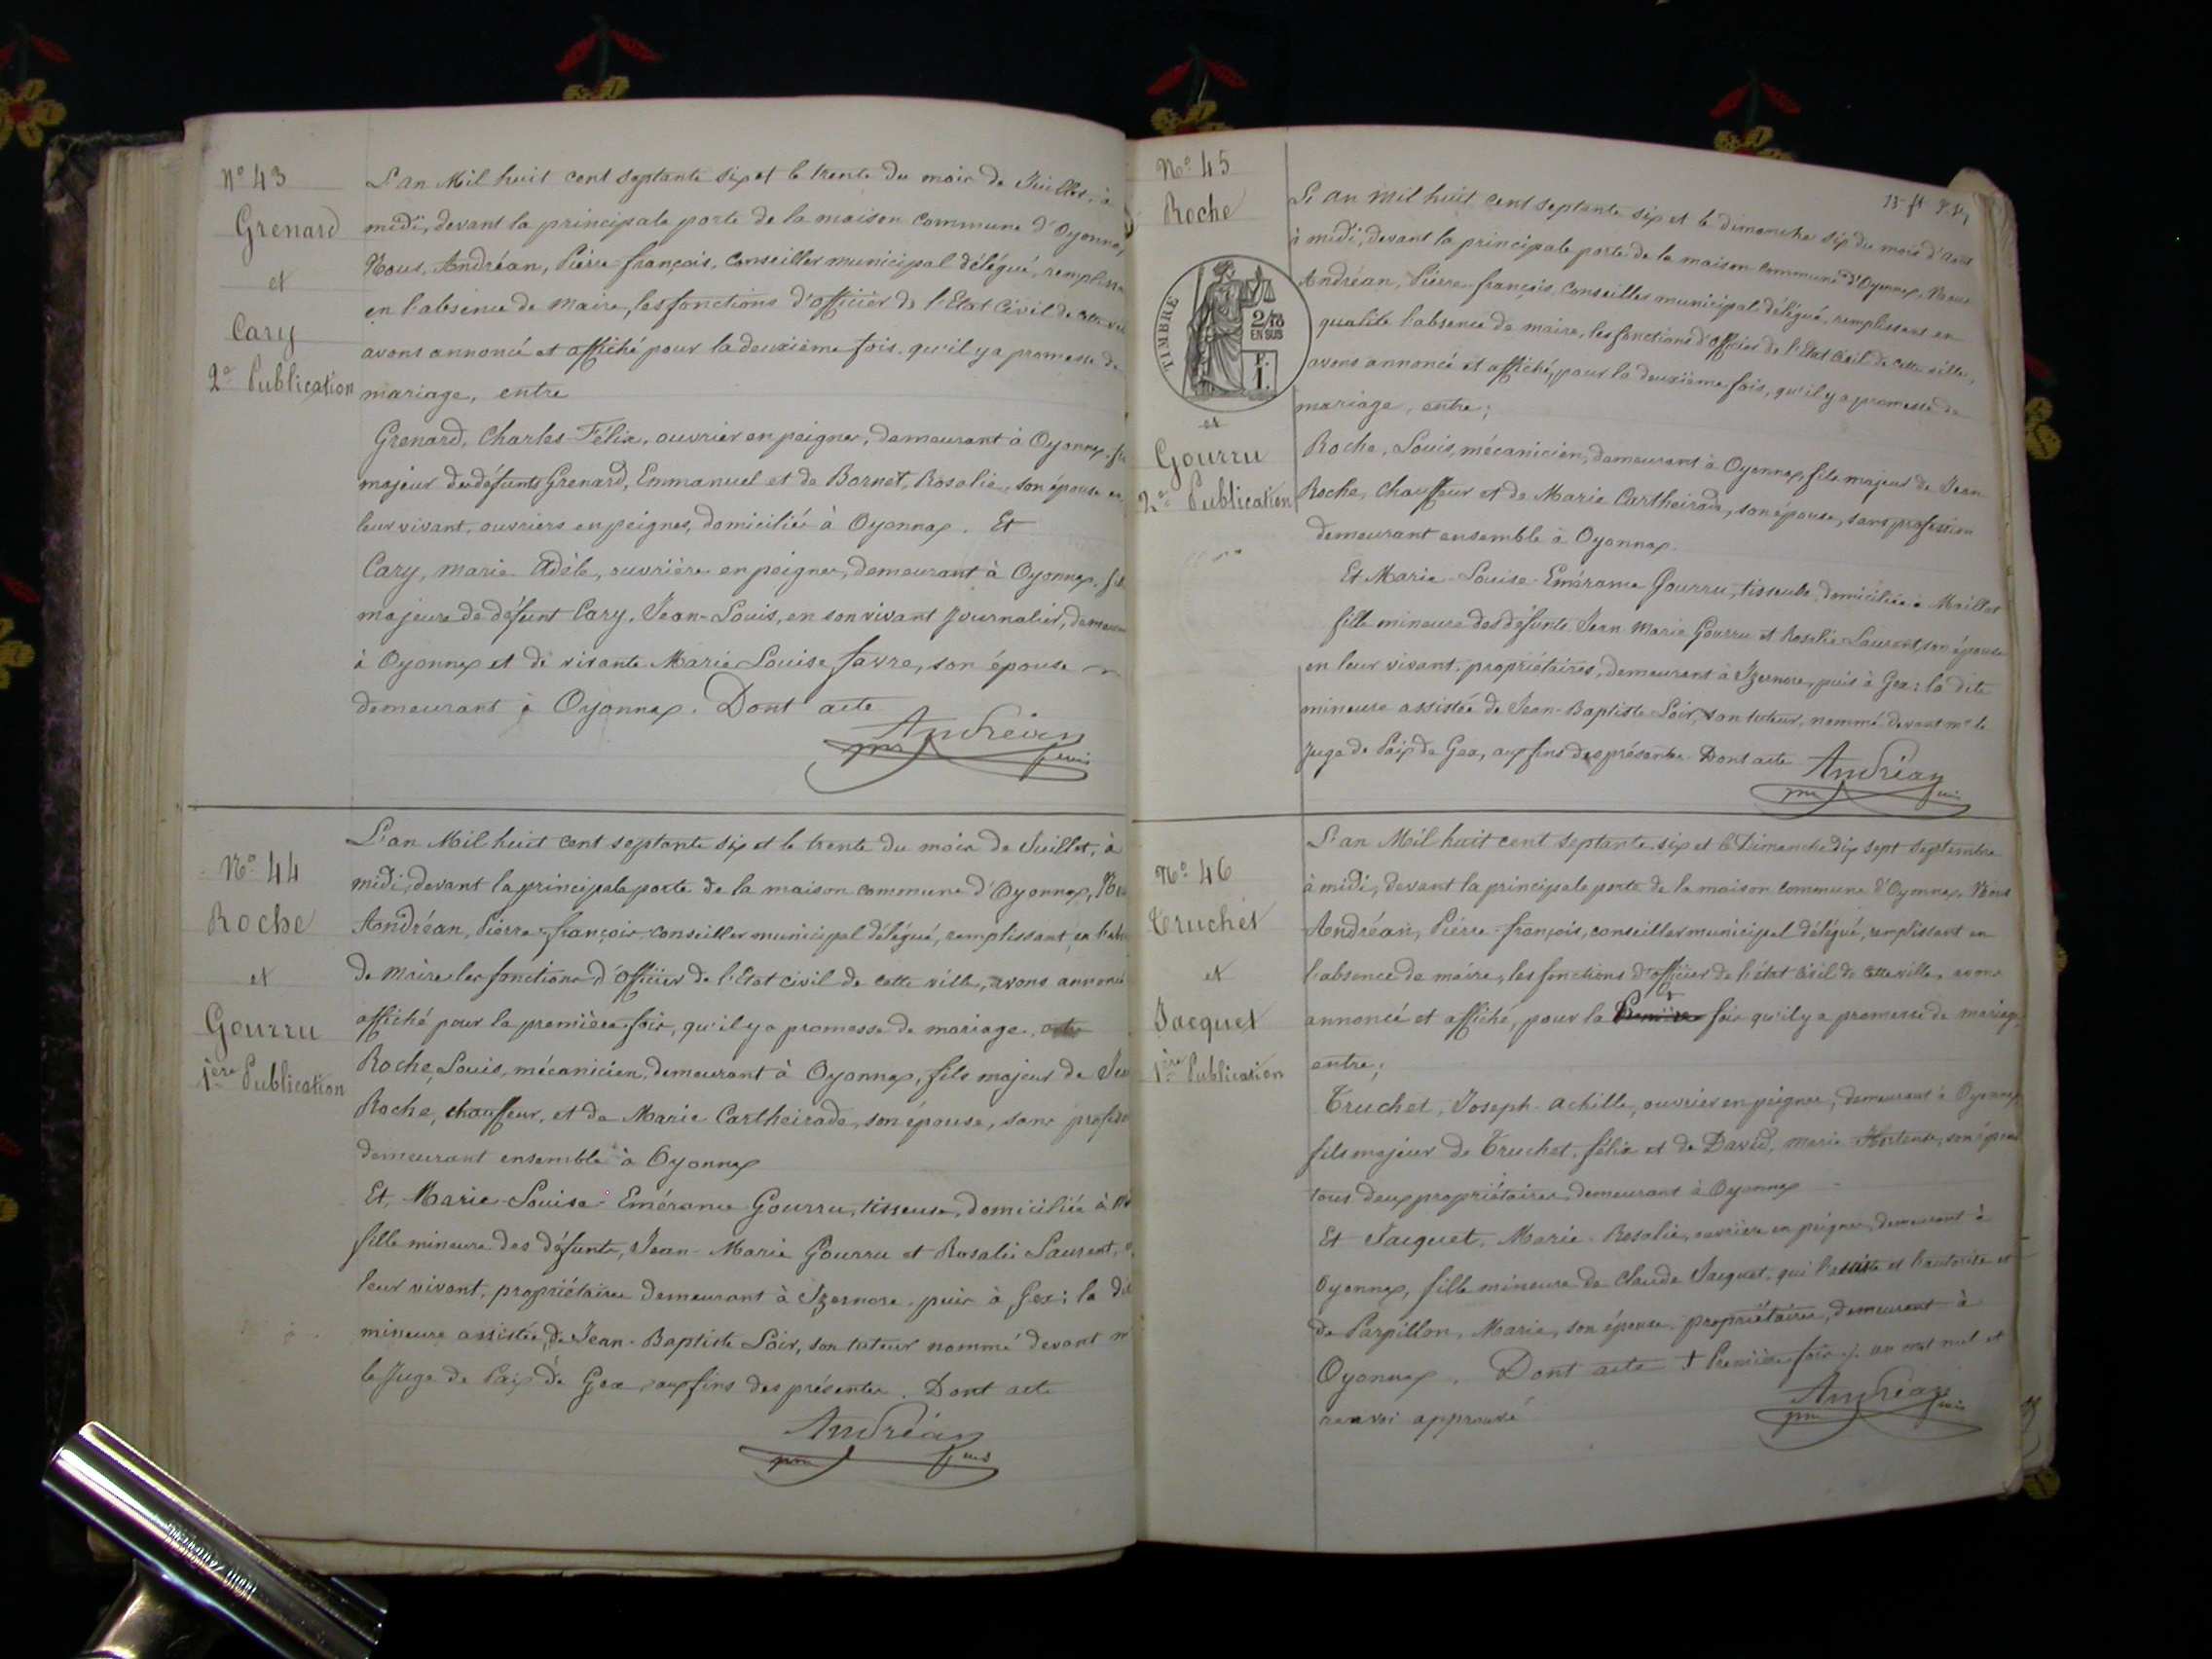 N° 43
Grenard
et
Cary
2e Publication
L'an Mil huit cent septante six et le trente du mois de Juillet, à
midi, devant la principale porte de la maison commune d'Oyonnax,
Nous, Andréan, Pierre-françois, Conseiller municipal délégué, remplissa
en l'absence de maire, les fonctions d'officier de l'Etat Civil de cette
avons annoncé et affiché pour la deuxième fois, qu'il y a promesse de
mariage, entre
Grenard, Charles-Félix, ouvrier en peignes, demeurant à Oyonnax, fi
majeur des défunts Grenard, Emmanuel et de Bornet, Rosalie, son épouse en
leur vivant, ouvriers en peignes, domiciliés à Oyonnax. Et
Cary, Marie Adèle, ouvrière en peignes, demeurant à Oyonnax, fi
majeure de défunt Cary, Jean-Louis, en son vivant Journalier, demeu
à Oyonnax et de vivante Marie Louise favre, son épouse
demeurant à Oyonnax. Dont acte
Andréan
N° 44
Roche
et
Gourru
1ère Publication
L'an Mil huit cent septante six et le trente du mois de Juillet, à
midi, devant la principale porte de la maison commune d'Oyonnax, No
Andréan, Pierre-françois, conseiller municipal délégué, remplissant en l'ab
de maire les fonctions d'officier de l'Etat civil de cette ville, avons annoncé
affiché pour la première fois, qu'il y a promesse de mariage, entre
Roche, Louis, mécanicien, demeurant à Oyonnax, fils majeur de Jea
Roche, chauffeur, et de Marie Cartheirade, son épouse, sans profess
demeurant ensemble à Oyonnax
Et, Marie-Louise-Emérance Gourru, tisseuse, domiciliée à M
fille mineure des défunts, Jean-Marie Gourru et Rosalie Laurent, e
leur vivant, propriétaires demeurant à Izernore, puis à Gex; la di
mineure assistée, de Jean-Baptiste Loir, son tuteur nommé devant m
le Juge de Paix de Gex, aux fins des présentes. Dont acte
Andréan
N° 45
Roche
TIMBRE
2/10
EN SUS
F.
1.
et
Gourru
2e Publication
L'an mil huit cent septante six et le dimanche six du mois d'aout
à midi, devant la principale porte de la maison commune d'Oyonnax, Nous
Andréan, Pierre-françois, Conseiller municipal délégué, remplissant en
qualité l'absence de maire, les fonctions d'officier de l'Etat Civil de cette ville,
avons annoncé et affiché, pour la deuxième fois, qu'il y a promesse de
mariage, entre;
Roche, Louis, mécanicien, demeurant à Oyonnax, fils majeur de Jean
Roche, Chauffeur et de Marie Cartheirade, son épouse, sans profession
demeurant ensemble à Oyonnax.
Et Marie-Louise-Emérance Gourru, tisseuse, domiciliée à Maillat
fille mineure des défunts Jean Marie Gourru et Rosalie Laurent, son épouse
en leur vivant, propriétaires, demeurant à Izernore, puis à Gex; la dite
mineure assistée de Jean-Baptiste Loir, son tuteur, nommé devant mr le
Juge de Paix de Gex, aux fins des présentes. Dont acte
Andréan
N° 46
Truchet
et
Jacquet
1ère Publication
L'an Mil huit cent septante six et le Dimanche dix sept septembre
à midi, devant la principale porte de la maison commune d'Oyonnax, Nous
Andréan, Pierre-françois, conseiller municipal délégué, remplissant en
l'absence de maire, les fonctions d'officier de l'état civil de cette ville, avons
annoncé et affiché, pour la Première fois qu'il y a promesse de mariage,
entre;
Truchet, Joseph-Achille, ouvrier en peignes, demeurant à Oyonnax
fils majeur de Truchet, félix et de David, Marie-Hortense, son épouse
tous deux propriétaires demeurant à Oyonnax
Et Jacquet, Marie-Rosalie, ouvrière en peignes, demeurant à
Oyonnax, fille mineure de Claude Jacquet, qui l'assiste et l'autorise et
de Parpillon, Marie, son épouse, propriétaires, demeurant à
Oyonnax. Dont acte † Première fois un mot nul et
renvoi approuvé
Andréan